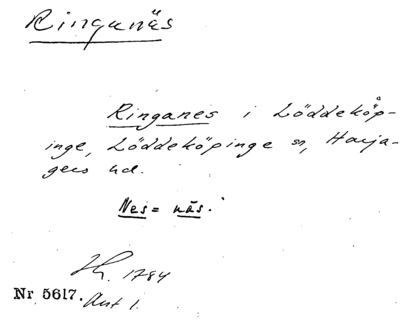 Ringanäs
Ringanes i Löddeköp-
inge, Löddeköpinge sn, Harja-
gers hd.
Nes = näs.
1784
Nr 5617. Akt 1.